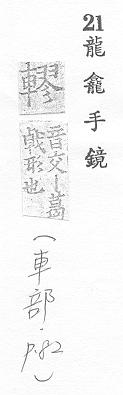 21龍龕手鏡
轇
音交丨葛
戟形也
(車部·p.82)